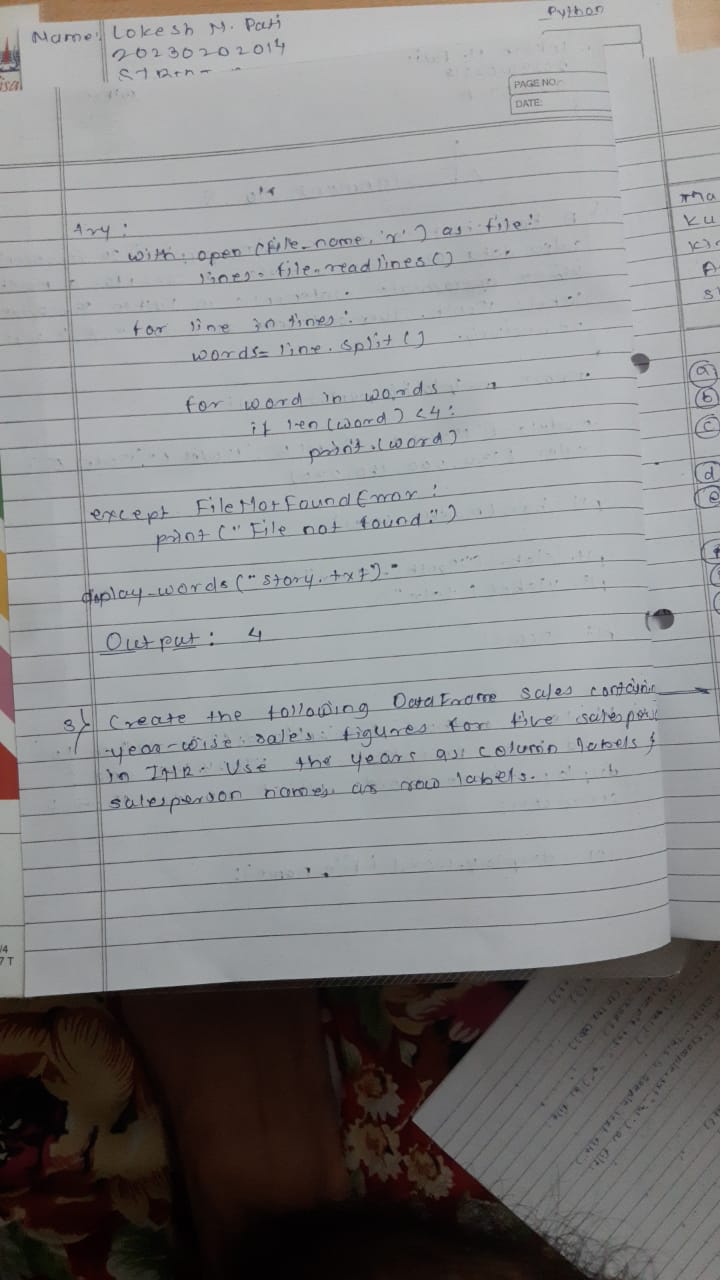 Python
Name: Lokesh M. Pati
20230202014
PAGE NO.
DATE:
try:
with open (file_name, 'r') as file:
lines = file.readlines()
for line in lines:
words = line.split()
for word in words:
if len(word) <4:
print.(word)
except FileNotFoundError:
print ("File not found.")
display_words ("story.txt").
Output: 4
3) Create the following DataFrame sales containin
year-wise sales figures for five salespers
in INR. Use the years as column labels &
salesperson names as row labels.
a
b
c
d
e